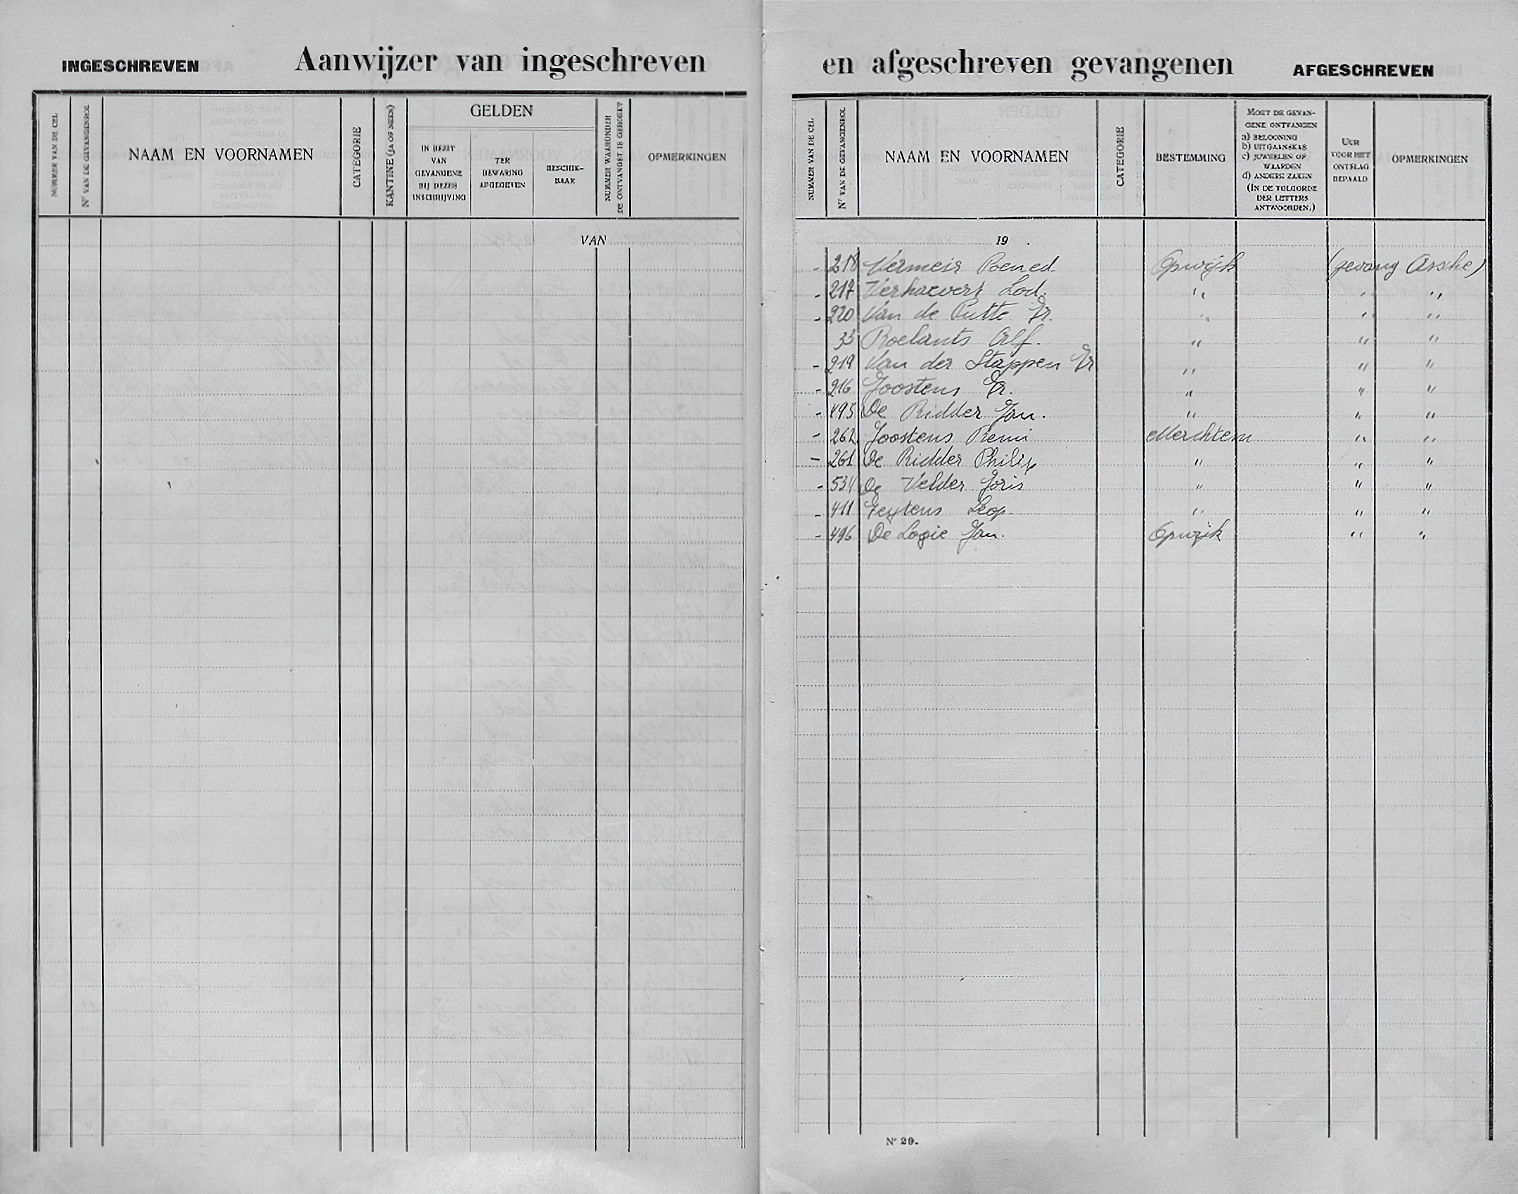 INGESCHREVEN
Aanwijzer van ingeschreven
NUMMER VAN DE CEL
Nr VAN DE GEVANGENROL
NAAM EN VOORNAMEN
CATEGORIE
KANTINE (JA OF NEEN)
GELDEN
IN BEZIT
VAN
GEVANGENE
BIJ DEZES
INSCHRIJVING
TER
BEWARING
AFGEGEVEN
BESCHIK-
BAAR
NUMMER WAARONDER
DE ONTVANGST IS GEBOEKT
OPMERKINGEN
VAN
en afgeschreven gevangenen
AFGESCHREVEN
NUMMER VAN DE CEL
Nr VAN DE GEVANGENROL
NAAM EN VOORNAMEN
CATEGORIE
BESTEMMING
MOET DE GEVAN-
GENE ONTVANGEN
a) BELOONING
b) UITGAANSKAS
c) JUWEELEN OF
WAARDEN
d) ANDERE ZAKEN
(IN DE VOLGORDE
DER LETTERS
ANTWOORDEN.)
UUR
VOOR HET
ONTSLAG
BEPAALD
OPMERKINGEN
19 .
- 218 Vermeir Bened. Opwijk (gevang Assche)
- 217 Verhaevert Lod. " " "
- 220 Van de Putte Fr. " " "
35 Roelants Alf. " " "
- 219 Van der Stappen Fr " " "
- 216 Joostens Fr. " " "
- 495 De Ridder Jan. " " "
- 262 Joostens Remi Merchtem " "
- 261 De Ridder Philip " " "
- 534 De Velder Joris " " "
- 411 Leop. " " "
- 496 De Jan. Opwijk " "
Nr 29.